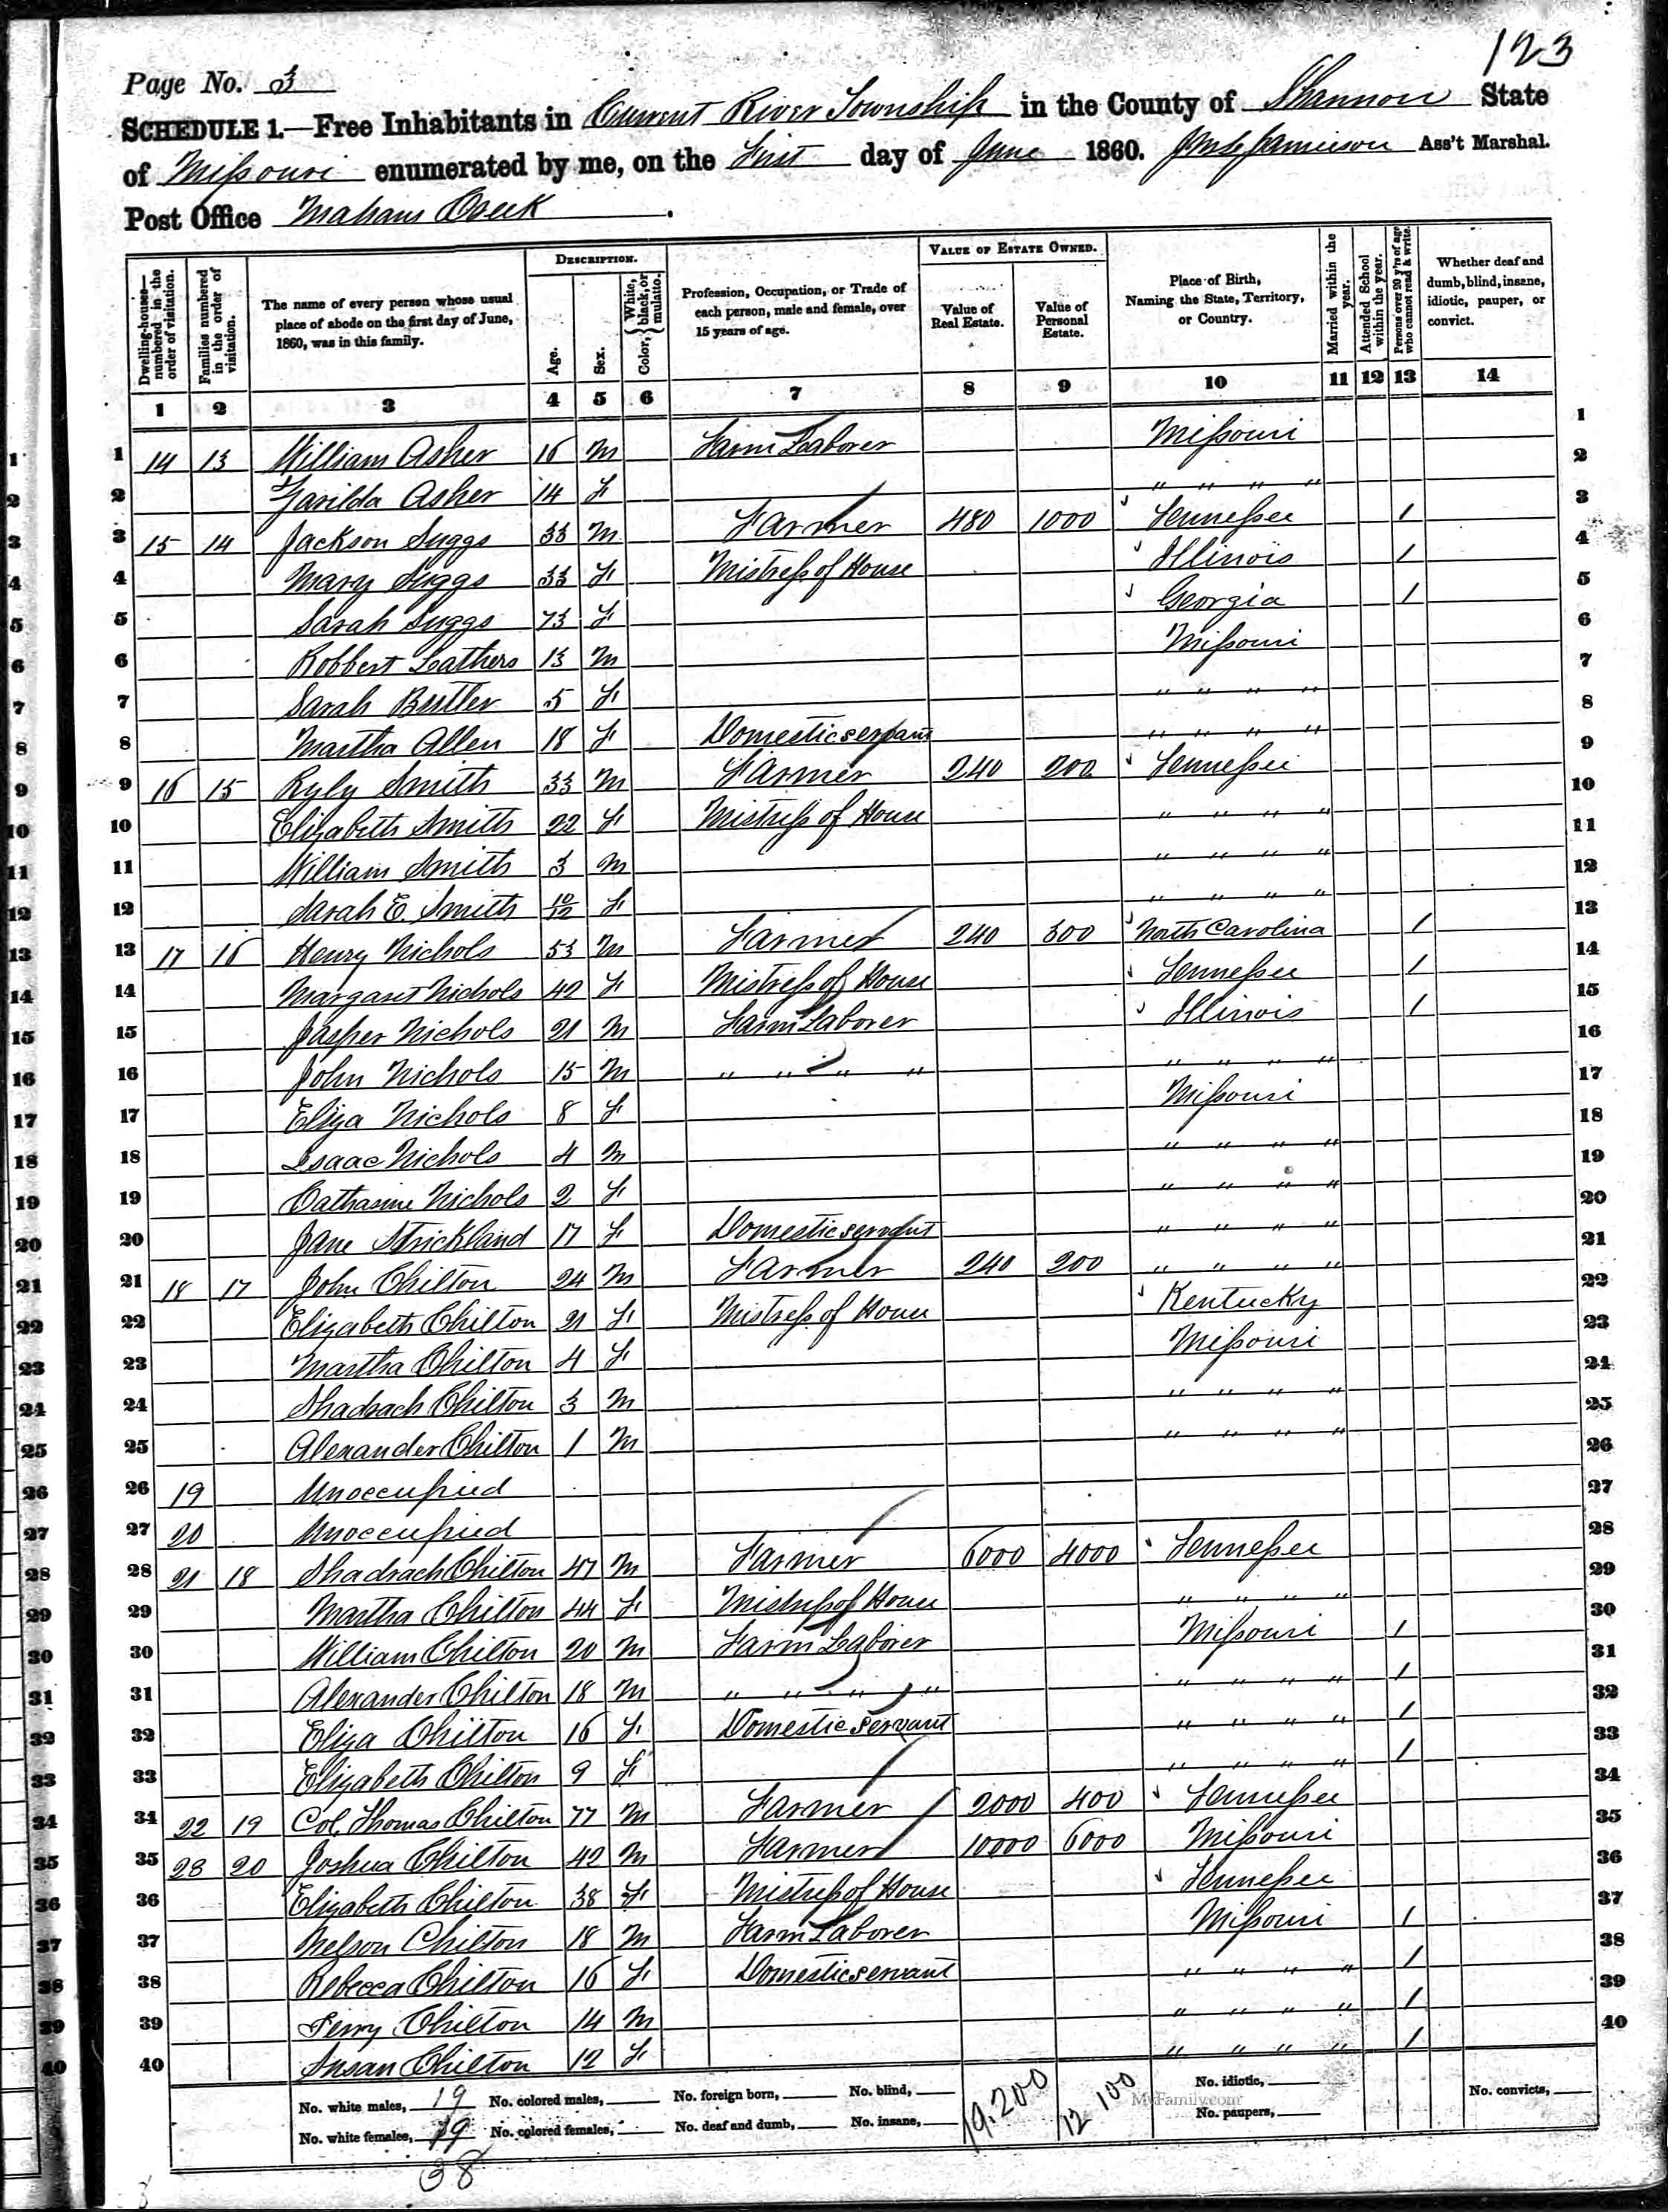 123
Page No. 3
SCHEDULE 1.—Free Inhabitants in Current River Township in the County of Shannon State
of Missouri enumerated by me, on the First day of June 1860. Jamieson Ass't Marshal.
Post Office Mahans Creek.
Dwelling-houses—numbered in the order of visitation. Families numbered in the order of visitation. The name of every person whose usual place of abode on the first day of June, 1860, was in this family. DESCRIPTION. Age. Sex. Color, { White, black, or mulatto. Profession, Occupation, or Trade of each person, male and female, over 15 years of age. VALUE OF ESTATE OWNED. Value of Real Estate. Value of Personal Estate. Place of Birth, Naming the State, Territory, or Country. Married within the year. Attended School within the year. Persons over 20 y'rs of age who cannot read & write. Whether deaf and dumb, blind, insane, idiotic, pauper, or convict.
1 2 3 4 5 6 7 8 9 10 11 12 13 14
1 14 13 William Asher 16 M Farm Laborer Missouri 1
2 Zarilda Asher 14 F " " " " 2
3 15 14 Jackson Suggs 33 M Farmer 480 1000 Tennessee / 3
4 Mary Suggs 33 F Mistress of House Illinois / 4
5 Sarah Suggs 73 F Georgia / 5
6 Robbert Leathers 13 M Missouri 6
7 Sarah Butler 5 F " " " " 7
8 Martha Allen 18 F Domestic servant " " " " 8
9 16 15 Ryly Smith 33 M Farmer 240 200 Tennessee 9
10 Elizabeth Smith 22 F Mistress of House " " " " 10
11 William Smith 3 M " " " " 11
12 Sarah E. Smith 10/12 F " " " " 12
13 17 16 Henry Nichols 53 M Farmer 240 300 North Carolina / 13
14 Margaret Nichols 42 F Mistress of House Tennessee / 14
15 Jasper Nichols 21 M Farm Laborer Illinois / 15
16 John Nichols 15 M " " " " " " " " 16
17 Eliza Nichols 8 F Missouri 17
18 Isaac Nichols 4 M " " " " 18
19 Catharine Nichols 2 F " " " " 19
20 Jane Strickland 17 F Domestic servant " " " " 20
21 18 17 John Chilton 24 M Farmer 240 200 " " " " 21
22 Elizabeth Chilton 21 F Mistress of House Kentucky 22
23 Martha Chilton 4 F Missouri 23
24 Shadrach Chilton 3 M " " " " 24
25 Alexander Chilton 1 M " " " " 25
26 19 Unoccupied 26
27 20 Unoccupied 27
28 21 18 Shadrach Chilton 47 M Farmer 6000 4000 Tennessee 28
29 Martha Chilton 44 F Mistress of House " " " " 29
30 William Chilton 20 M Farm Laborer Missouri / 30
31 Alexander Chilton 18 M " " " " " " " " / 31
32 Eliza Chilton 16 F Domestic Servant " " " " / 32
33 Elizabeth Chilton 9 F " " " " / 33
34 22 19 Col. Thomas Chilton 77 M Farmer 2000 400 Tennessee 34
35 23 20 Joshua Chilton 42 M Farmer 10000 6000 Missouri 35
36 Elizabeth Chilton 38 F Mistress of House Tennessee 36
37 Nelson Chilton 18 M Farm Laborer Missouri / 37
38 Rebecca Chilton 16 F Domestic servant " " " " / 38
39 Perry Chilton 14 M " " " " / 39
40 Susan Chilton 12 F " " " " / 40
No. white males, 19 No. colored males, No. foreign born, No. blind, 19,200 12 100 No. idiotic, No. convicts,
No. white females, 19 No. colored females, No. deaf and dumb, No. insane, No. paupers,
38
MyFamily.com